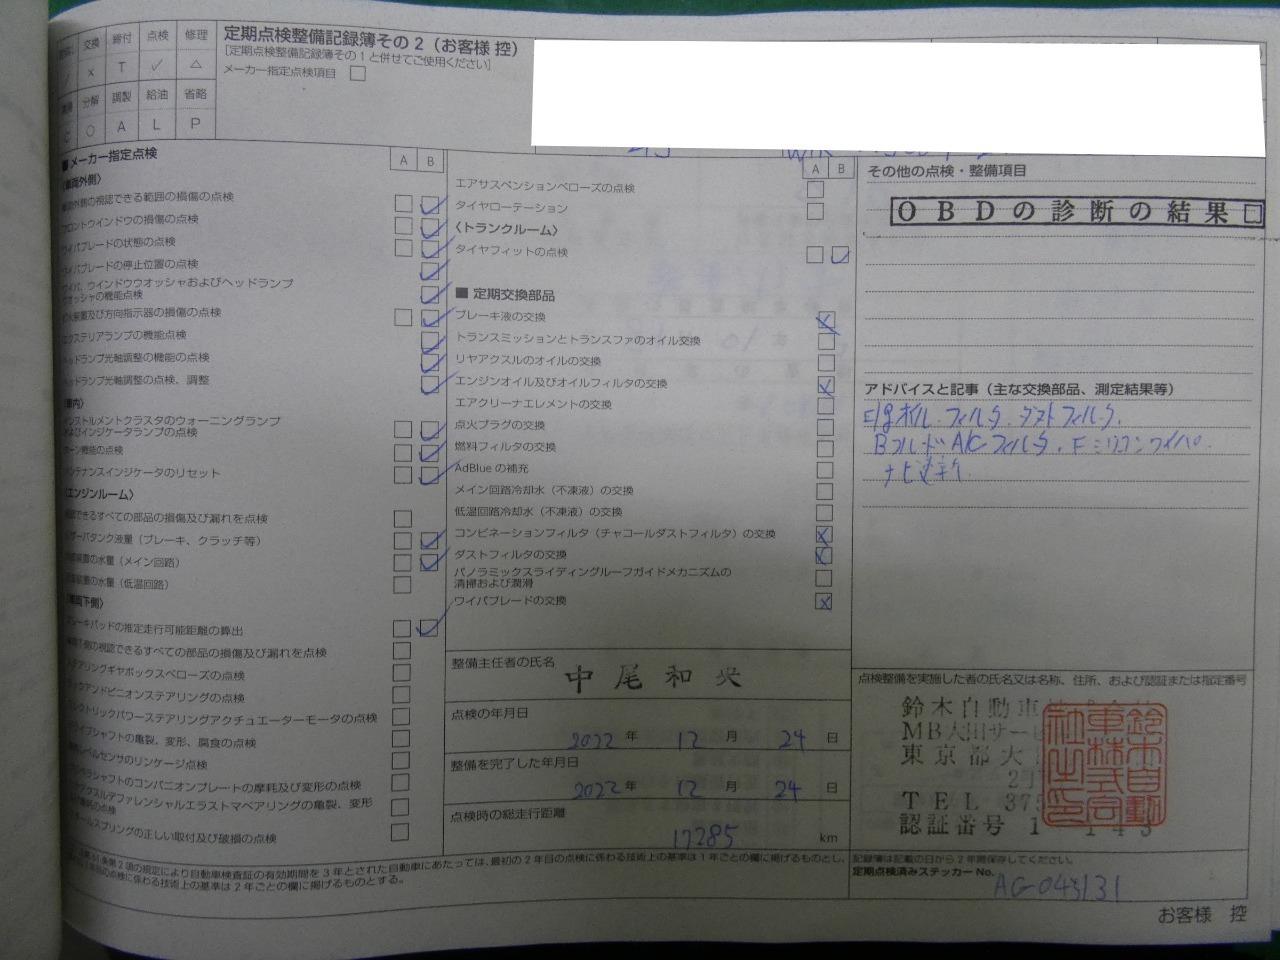 交換 締付 点検 修理
× T ✓ △
分解 調整 給油 省略
○ A L P
定期点検整備記録簿その2（お客様 控）
［定期点検整備記録簿その1と併せてご使用ください］
メーカー指定点検項目
■ メーカー指定点検
A B
の視認できる範囲の損傷の点検
フロントウインドウの損傷の点検
ワイパブレードの状態の点検
ワイパブレードの停止位置の点検
ワイパ、ウインドウウオッシャおよびヘッドランプ
ウオッシャの機能点検
及び方向指示器の損傷の点検
エクステリアランプの機能点検
ヘッドランプ光軸調整の機能の点検
ヘッドランプ光軸調整の点検、調整
インストルメントクラスタのウォーニングランプ
およびインジケータランプの点検
ホーン機能の点検
メンテナンスインジケータのリセット
〈エンジンルーム〉
確認できるすべての部品の損傷及び漏れを点検
リザーバタンク液量（ブレーキ、クラッチ等）
の水量（メイン回路）
の水量（低温回路）
ブレーキパッドの推定走行可能距離の算出
の視認できるすべての部品の損傷及び漏れを点検
ステアリングギヤボックスベローズの点検
ラックアンドピニオンステアリングの点検
エレクトリックパワーステアリングアクチュエーターモータの点検
ドライブシャフトの亀裂、変形、腐食の点検
レベルセンサのリンケージ点検
プロペラシャフトのコンパニオンプレートの摩耗及び変形の点検
アクスルデファレンシャルエラストマベアリングの亀裂、変形
の点検
コイルスプリングの正しい取付及び破損の点検
A B
エアサスペンションベローズの点検
タイヤローテーション
〈トランクルーム〉
タイヤフィットの点検
■ 定期交換部品
ブレーキ液の交換
トランスミッションとトランスファのオイル交換
リヤアクスルのオイルの交換
エンジンオイル及びオイルフィルタの交換
エアクリーナエレメントの交換
点火プラグの交換
燃料フィルタの交換
AdBlueの補充
メイン回路冷却水（不凍液）の交換
低温回路冷却水（不凍液）の交換
コンビネーションフィルタ（チャコールダストフィルタ）の交換
ダストフィルタの交換
パノラミックスライディングルーフガイドメカニズムの
清掃および潤滑
ワイパブレードの交換
整備主任者の氏名
中尾和央
点検の年月日
2022 年 12 月 24 日
整備を完了した年月日
2022 年 12 月 24 日
点検時の総走行距離
17285 km
その他の点検・整備項目
OBDの診断の結果
アドバイスと記事（主な交換部品、測定結果等）
E/gオイル．フィルタ．ダストフィルタ．
Bフルード A/Cフィルタ．Fシリコンワイパ．
ナビ更新
点検整備を実施した者の氏名又は名称、住所、および認証または指定番号
鈴木自動車
MB大田サービ
東京都大
TEL 375
認証番号 1 143
鈴木自動車株式会社之印
条第2項の規定により自動車検査証の有効期間を3年とされた自動車にあたっては、最初の2年目の点検に係わる技術上の基準は1年ごとの欄に掲げるものとし、
の点検に係わる技術上の基準は2年ごとの欄に掲げるものとする。
記録簿は記載の日から2年間保存してください。
定期点検済みステッカーNo. AG-043131
お客様 控